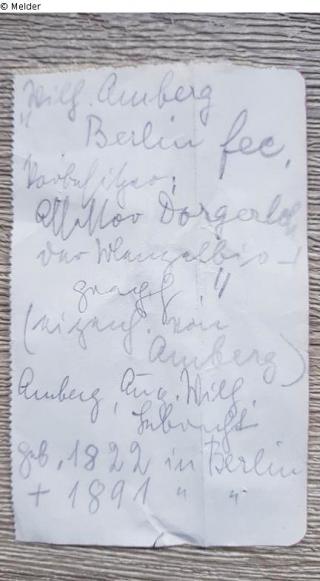 © Melder
"Wilh. Amberg
Berlin fec.
Vorbesitzer:
Dorgerloh
der Menzelbio-
graph "
(eigenh. von
Amberg)
Amberg, Aug. Wilh.
geb. 1822 in Berlin
+ 1891 " "